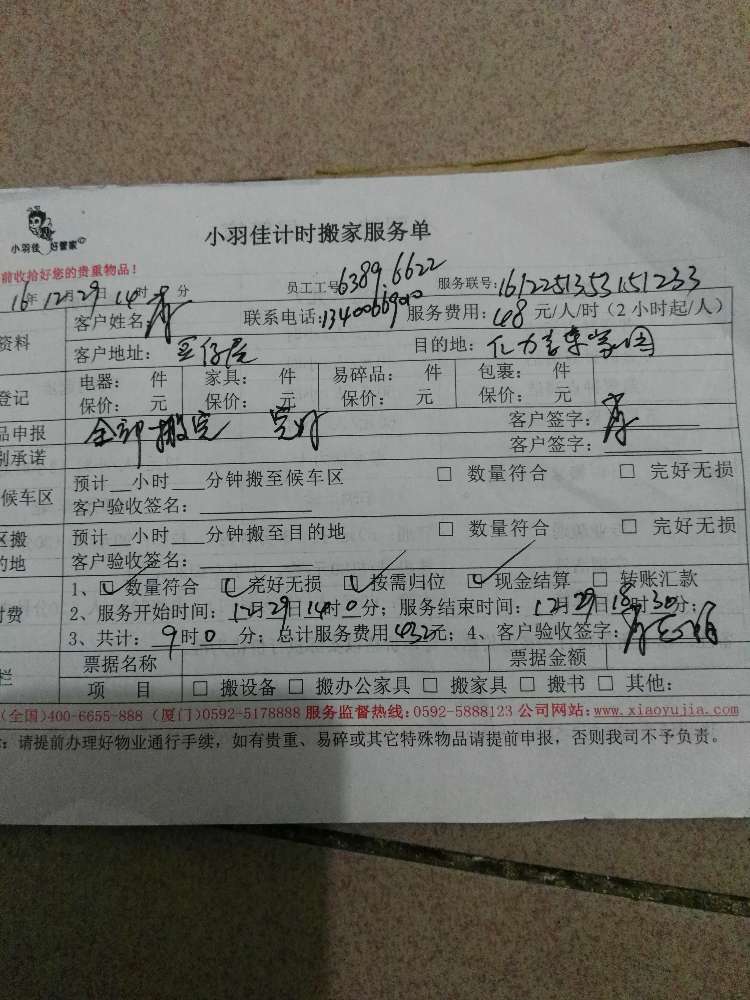 小羽佳 好管家
小羽佳计时搬家服务单
前收拾好您的贵重物品！
16年12月29日14时 分 员工工号6389.6622 服务联号:1612251353151233
资料 客户姓名: 联系电话:13400669010 服务费用:48元/人/时（2小时起/人）
客户地址: 目的地:
登记 电器: 件 家具: 件 易碎品: 件 包裹: 件
保价: 元 保价: 元 保价: 元 保价: 元
品申报 全部搬完 完好 客户签字:
别承诺 客户签字:
候车区 预计__小时___分钟搬至候车区 □ 数量符合 □ 完好无损
客户验收签名:
区搬 预计__小时___分钟搬至目的地 □ 数量符合 □ 完好无损
的地 客户验收签名:
1、☑数量符合 ☑完好无损 ☑按需归位 ☑现金结算 □ 转账汇款
付费 2、服务开始时间: 12月29日14时0分; 服务结束时间: 12月29日18时30分;
3、共计: 9时0分; 总计服务费用432元; 4、客户验收签字:
栏 票据名称 票据金额
项 目 □ 搬设备 □ 搬办公家具 □ 搬家具 □ 搬书 □ 其他:
(全国)400-6655-888 (厦门)0592-5178888 服务监督热线:0592-5888123 公司网站:www.xiaoyujia.com
: 请提前办理好物业通行手续，如有贵重、易碎或其它特殊物品请提前申报，否则我司不予负责。